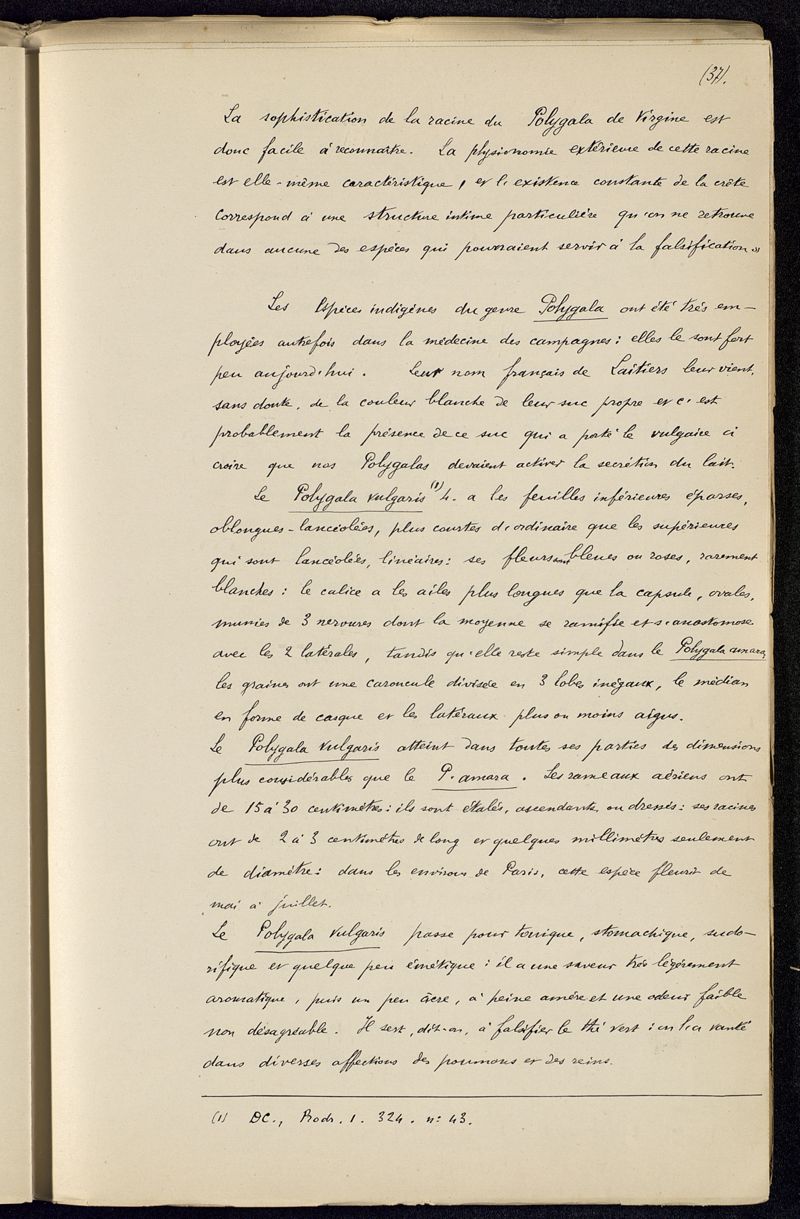 (37).
La sophistication de la racine du Polygala de Virgine est
donc facile à reconnaître. La physionomie extérieure de cette racine
est elle-même caractéristique, et l'existence constante de la crête
correspond à une structure intime particulière qu'on ne retrouve
dans aucune des espèces qui pourraient servir à la falsification »
Les Espèces indigènes du genre Polygala ont été très em-
ployées autrefois dans la médecine des campagnes ; elles le sont fort
peu aujourd'hui. Leur nom français de Laitiers leur vient,
sans doute, de la couleur blanche de leur suc propre et c'est
probablement la présence de ce suc qui a porté le vulgaire à
croire que nos Polygalas devaient activer la secrétion du lait.
Le Polygala vulgaris (1) L. a les feuilles inférieures éparses,
oblongues-lancéolées, plus courtes d'ordinaire que les supérieures
qui sont lancéolées, linéaires : ses fleurs sont bleues ou roses, rarement
blanches : le calice a les ailes plus longues que la capsule, ovales,
munies de 3 nervures dont la moyenne se ramifie et s'anastomose
avec les 2 latérales, tandis qu'elle reste simple dans le Polygala amara,
les graines ont une caroncule divisée en 3 lobes inégaux, le médian
en forme de casque et les latéraux plus ou moins aigus.
Le Polygala vulgaris atteint dans toutes ses parties des dimensions
plus considérables que le P. amara. Les rameaux aériens ont
de 15 à 30 centimètres : ils sont étalés, ascendants ou dressés : ses racines
ont de 2 à 3 centimètres de long et quelques millimètres seulement
de diamètre : dans les environs de Paris, cette espèce fleurit de
mai à juillet.
Le Polygala vulgaris passe pour tonique, stomachique, sudo-
rifique et quelque peu émétique : il a une saveur très légèrement
aromatique, puis un peu âcre, à peine amère et une odeur faible
non désagréable. Il sert, dit-on, à falsifier le thé vert : on l'a vanté
dans diverses affections des poumons et des reins.
(1) DC., Prodr. 1. 324. n° 43.